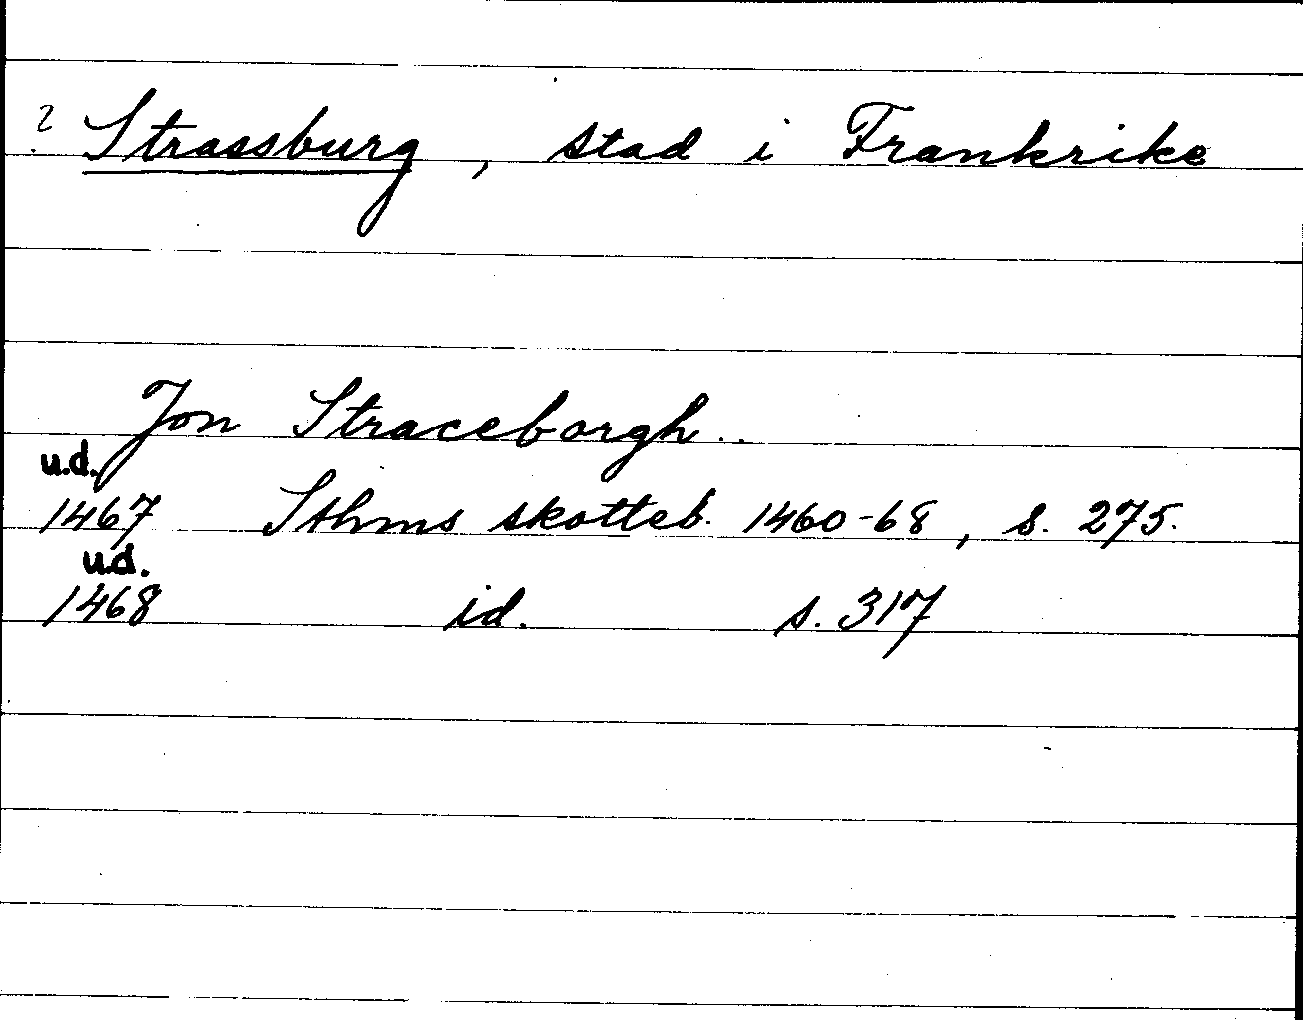 ? Strassburg, stad i Frankrike
Jon Straceborgh..
u.d.
1467 Sthms skotteb. 1460-68, s. 275.
u.d.
1468 id. s. 317